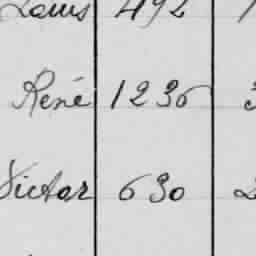 Louis 492
René 1236
Victor 630